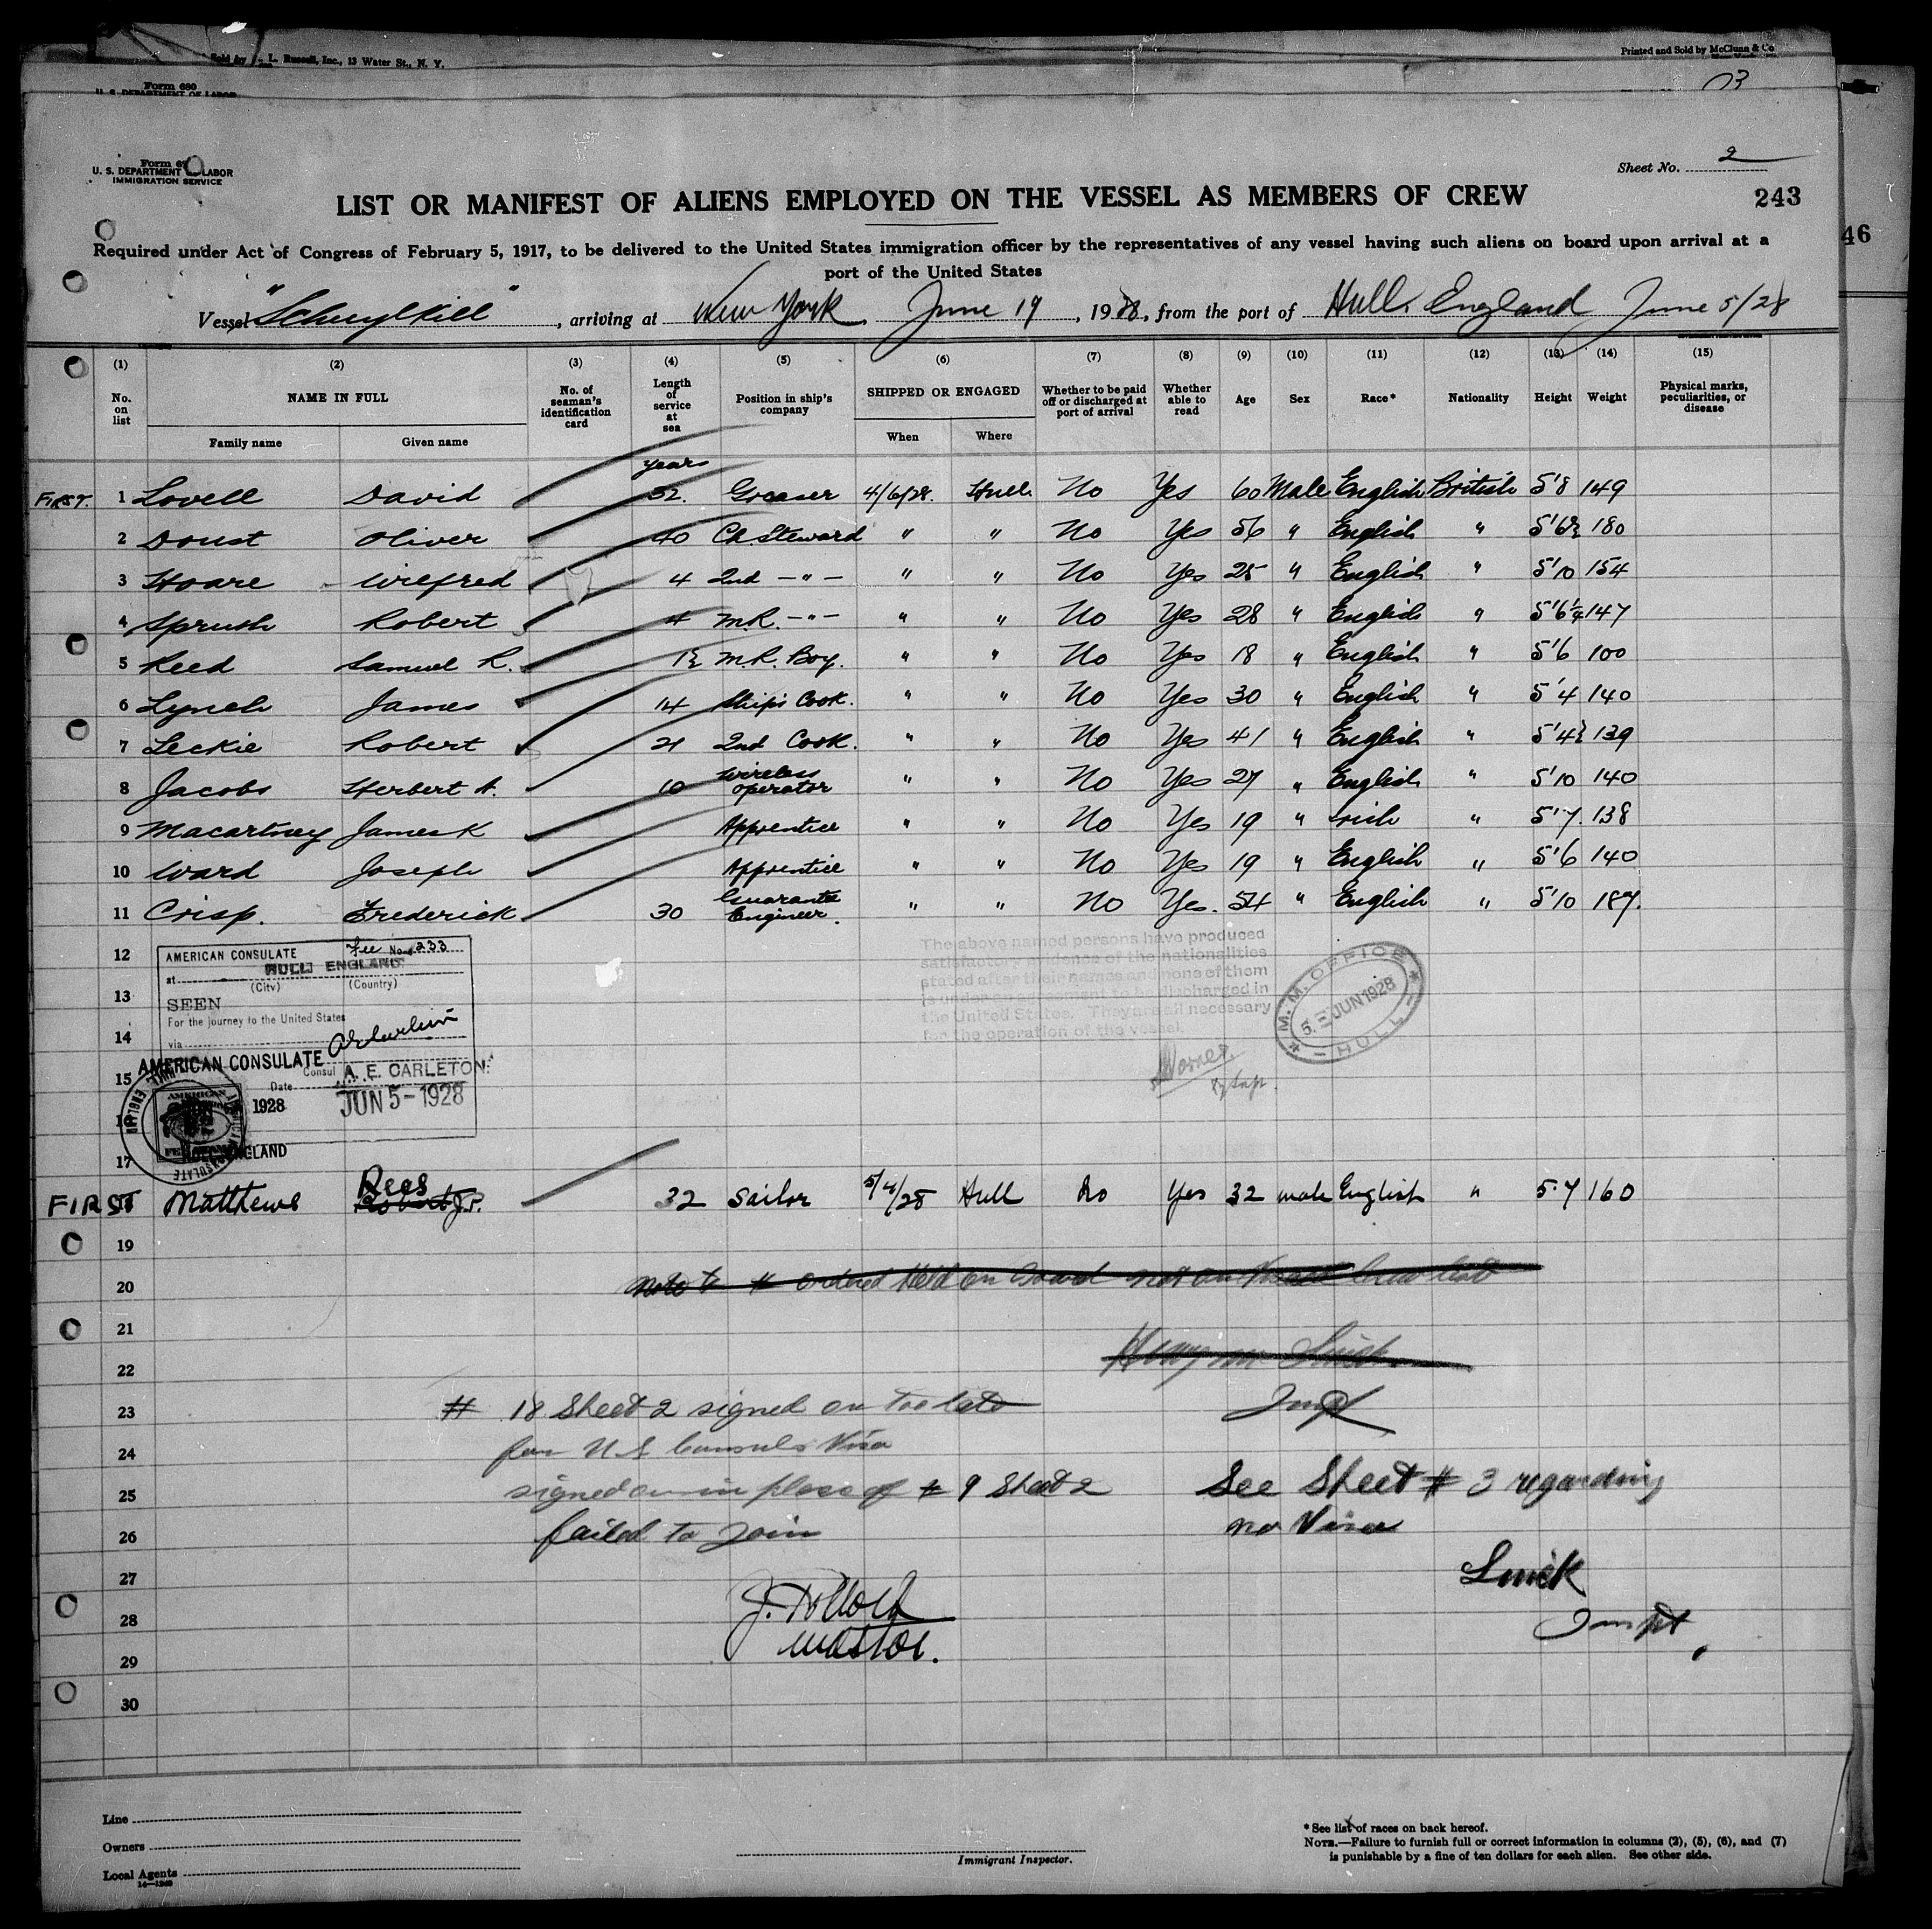 Sold by L. Russell, Inc., 13 Water St., N. Y.
Printed and Sold by McClunn & Co
Form 680
U. S. DEPARTMENT OF LABOR
3
Form 6
U. S. DEPARTMENT LABOR
IMMIGRATION SERVICE
Sheet No. 2
LIST OR MANIFEST OF ALIENS EMPLOYED ON THE VESSEL AS MEMBERS OF CREW
243
46
Required under Act of Congress of February 5, 1917, to be delivered to the United States immigration officer by the representatives of any vessel having such aliens on board upon arrival at a
port of the United States
Vessel "Schuylkill", arriving at New York June 19, 1928, from the port of Hull. England June 5/28
(1) (2) (3) (4) (5) (6) (7) (8) (9) (10) (11) (12) (13) (14) (15)
No. on list NAME IN FULL No. of seaman's identification card Length of service at sea Position in ship's company SHIPPED OR ENGAGED Whether to be paid off or discharged at port of arrival Whether able to read Age Sex Race* Nationality Height Weight Physical marks, peculiarities, or disease
Family name Given name When Where
years
FIRST. 1 Lovell David 32. Greaser 4/6/28. Hull No Yes 60 Male English British 5'8 149
2 Doust Oliver 40 Ch. Steward " " No Yes 56 " English " 5'6½ 180
3 Hoare Wilfred 4 2nd -"- " " No Yes 25 " English " 5'10 154
4 Sprush Robert 4 M.R. -"- " " No Yes 28 " English " 5'6¼ 147
5 Reed Samuel R. 1½ M.R. Boy. " " No Yes 18 " English " 5'6 100
6 Lynch James 14 Ship's Cook. " " No Yes 30 " English " 5'4 140
7 Leckie Robert 21 2nd Cook. " " No Yes 41 " English " 5'4½ 139
8 Jacobs Herbert A. 10 Wireless operator " " No Yes 27 " English " 5'10 140
9 Macartney James K Apprentice " " No Yes 19 " Irish " 5'7. 138
10 Ward Joseph Apprentice " " No Yes 19 " English " 5'6 140
11 Crisp. Frederick 30 Guarante Engineer. " " No Yes. 54 " English " 5'10 187.
12
AMERICAN CONSULATE Fee No. 233
at HULL ENGLAND
(City) (Country)
13
SEEN
For the journey to the United States
14
via
AMERICAN CONSULATE
15
Consul A. E. CARLETON.
Date JUN 5-1928
1928
16
HULL, ENGLAND
The above named persons have produced
satisfactory evidence of the nationalities
stated after their names and none of them
is under an agreement to be discharged in
the United States. They are all necessary
for the operation of the vessel.
M. M. OFFICE
5 JUN 1928
HULL
17
FIRST 18 Matthews Rees Robert J.P. 32 Sailor 5/6/28 Hull No Yes 32 male English " 5.7 160
19
20 Note # ordered Held on board not on Crew list
21
22 Henry m Smick
23 # 18 Sheet 2 signed on too late Inspt
24 for U S Consuls Visa
25 signed on in place of # 9 Sheet 2 See Sheet # 3 regarding
26 failed to Join no Visa
27 Smick
28 J. Pollock Inspt.
29 Master.
30
Line
Owners
Local Agents
14-1240
Immigrant Inspector.
*See list of races on back hereof.
NOTE.—Failure to furnish full or correct information in columns (2), (5), (6), and (7)
is punishable by a fine of ten dollars for each alien. See other side.